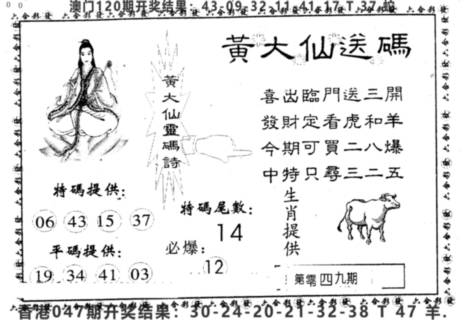 澳门120期开奖结果：43-09-32-11-41-17 T 37 蛇
黃大仙送碼
黃大仙靈碼詩
喜出臨門送三開
發財定看虎和羊
今期可買二八爆
中特只尋三二五
特碼提供：
06 43 15 37
平碼提供：
19 34 41 03
特碼尾數：
14
必爆：
12
生肖提供
第零四九期
香港047期开奖结果：30-24-20-21-32-38 T 47 羊.